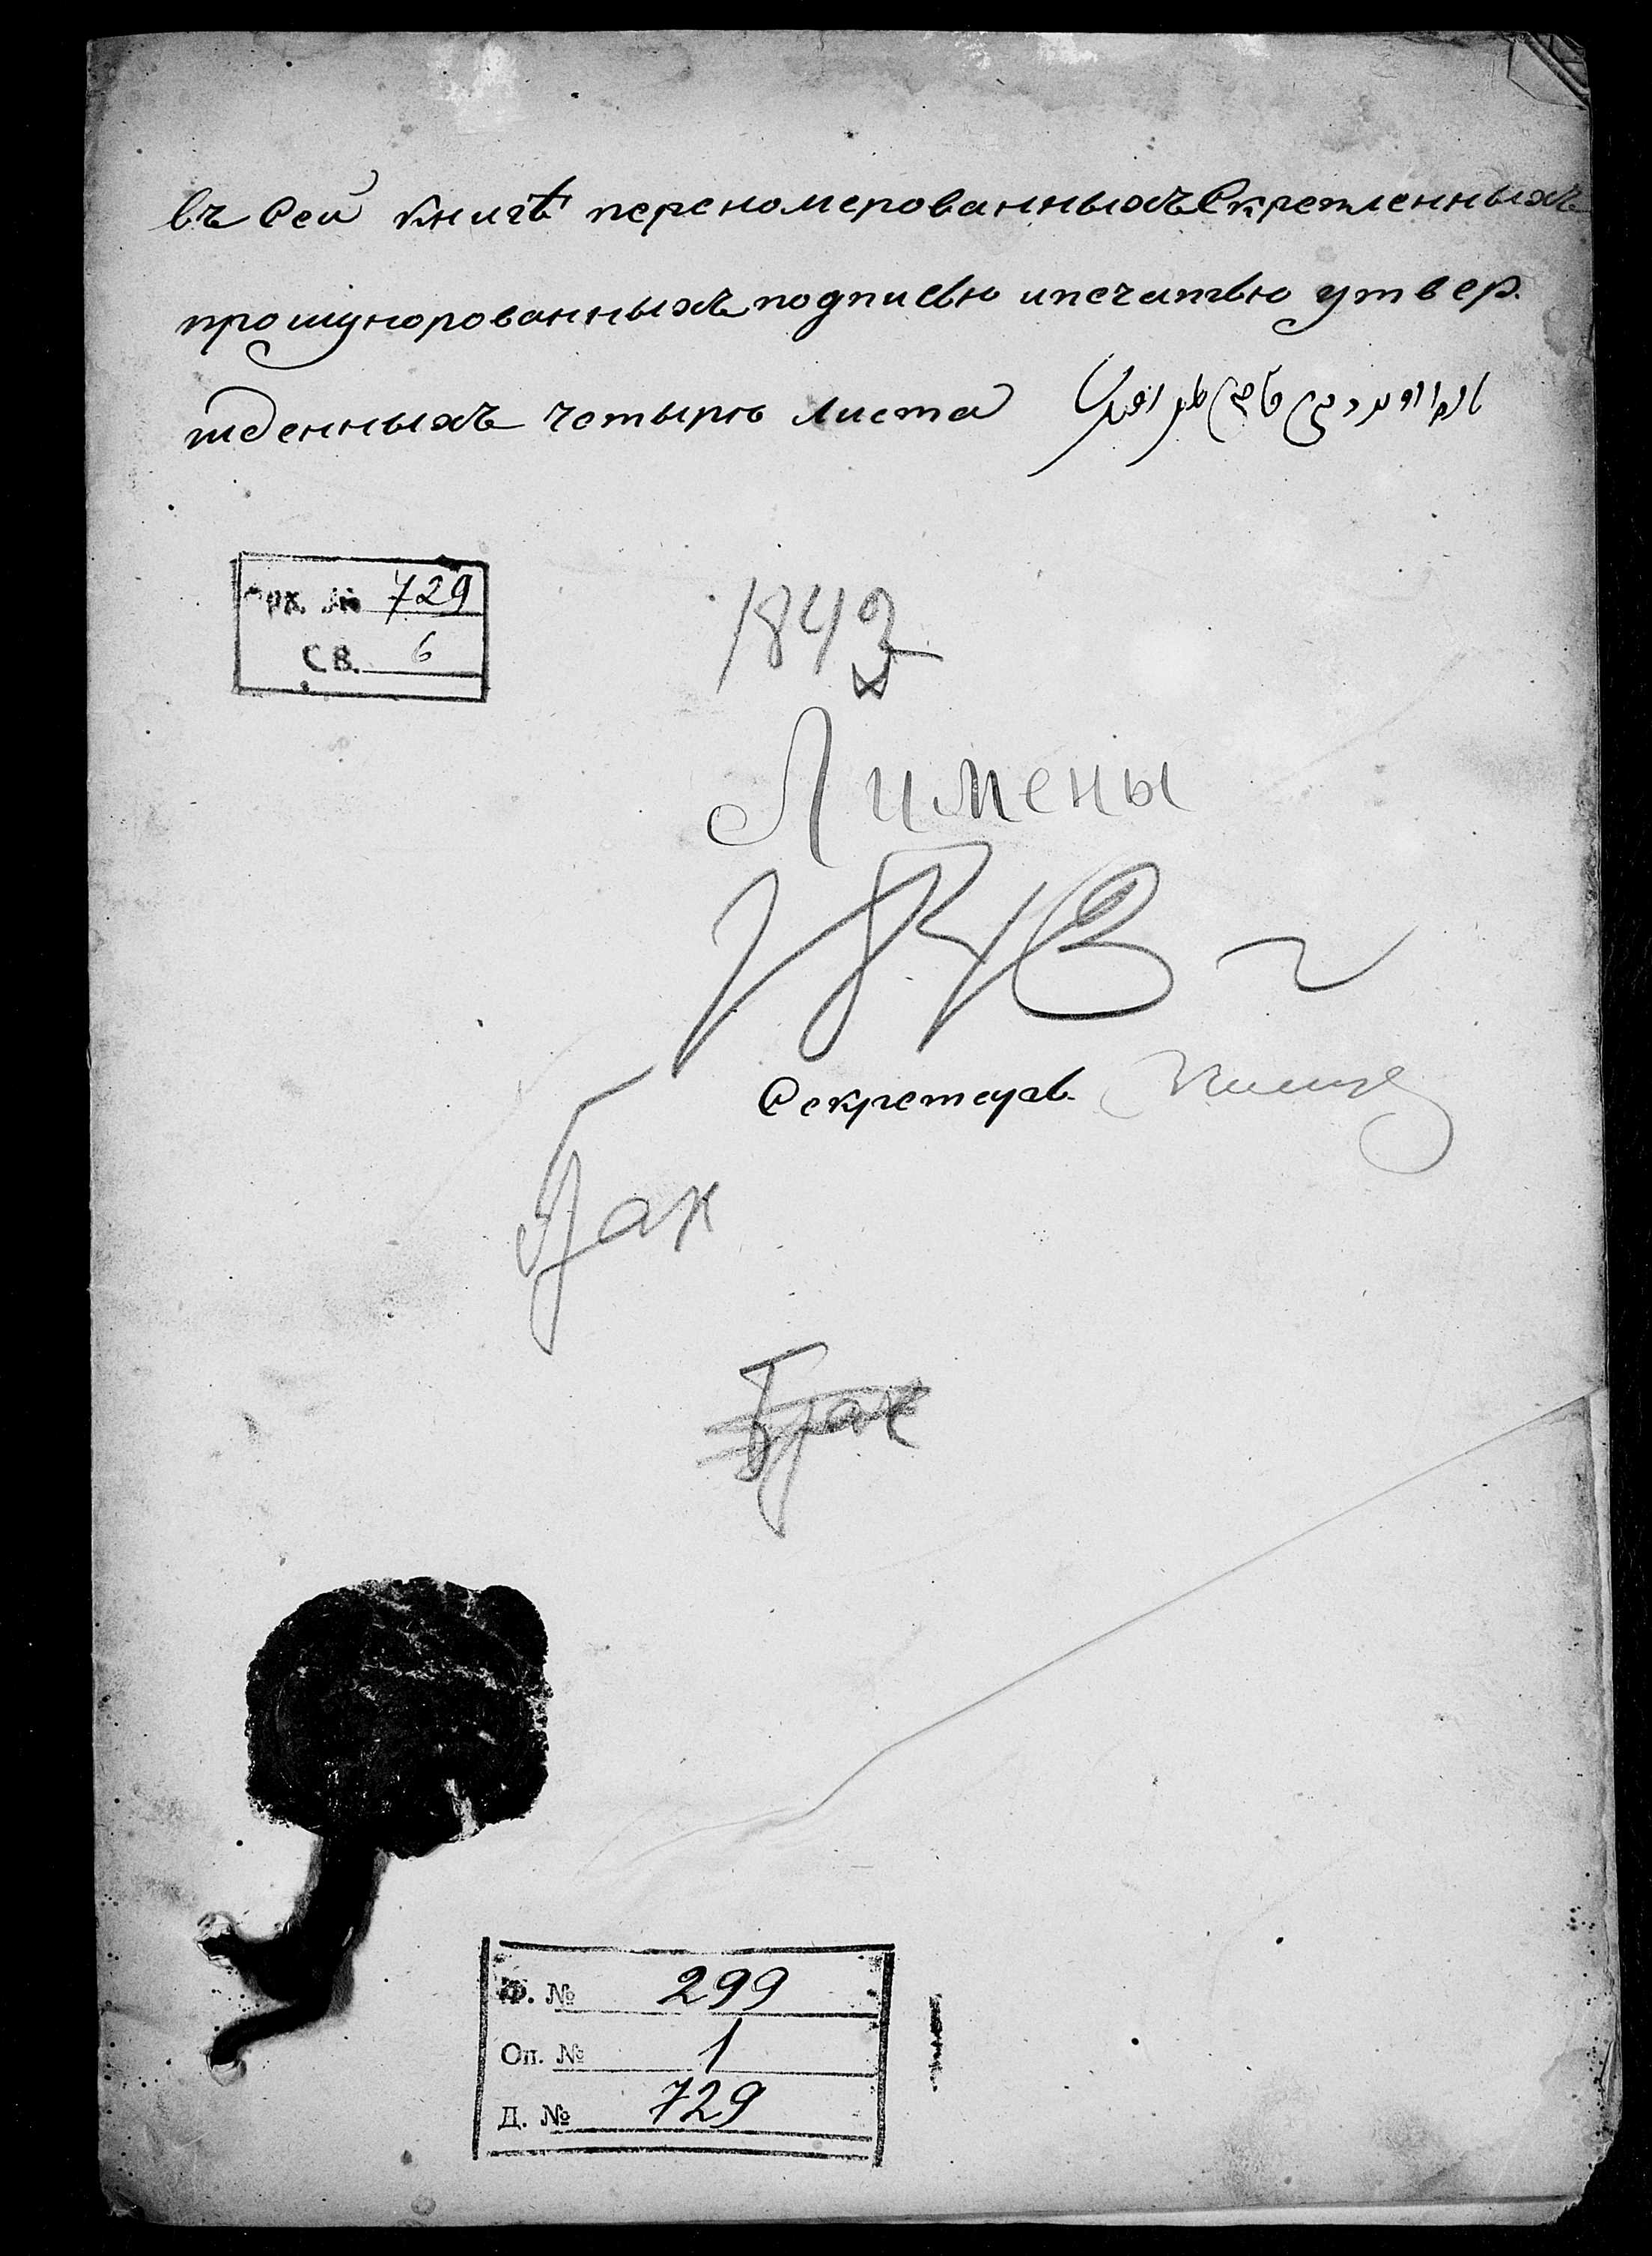 въ сей книгѣ переномерованныхъ скрепленныхъ
прошунорованныхъ подписью и печатью утвер.
жденныхъ четыры листа
Арх. № 729
СВ. 6
1842
Лимены
1842
Секретарь
Брак
Брак
Ф. № 299
Оп. № 1
Д. № 729